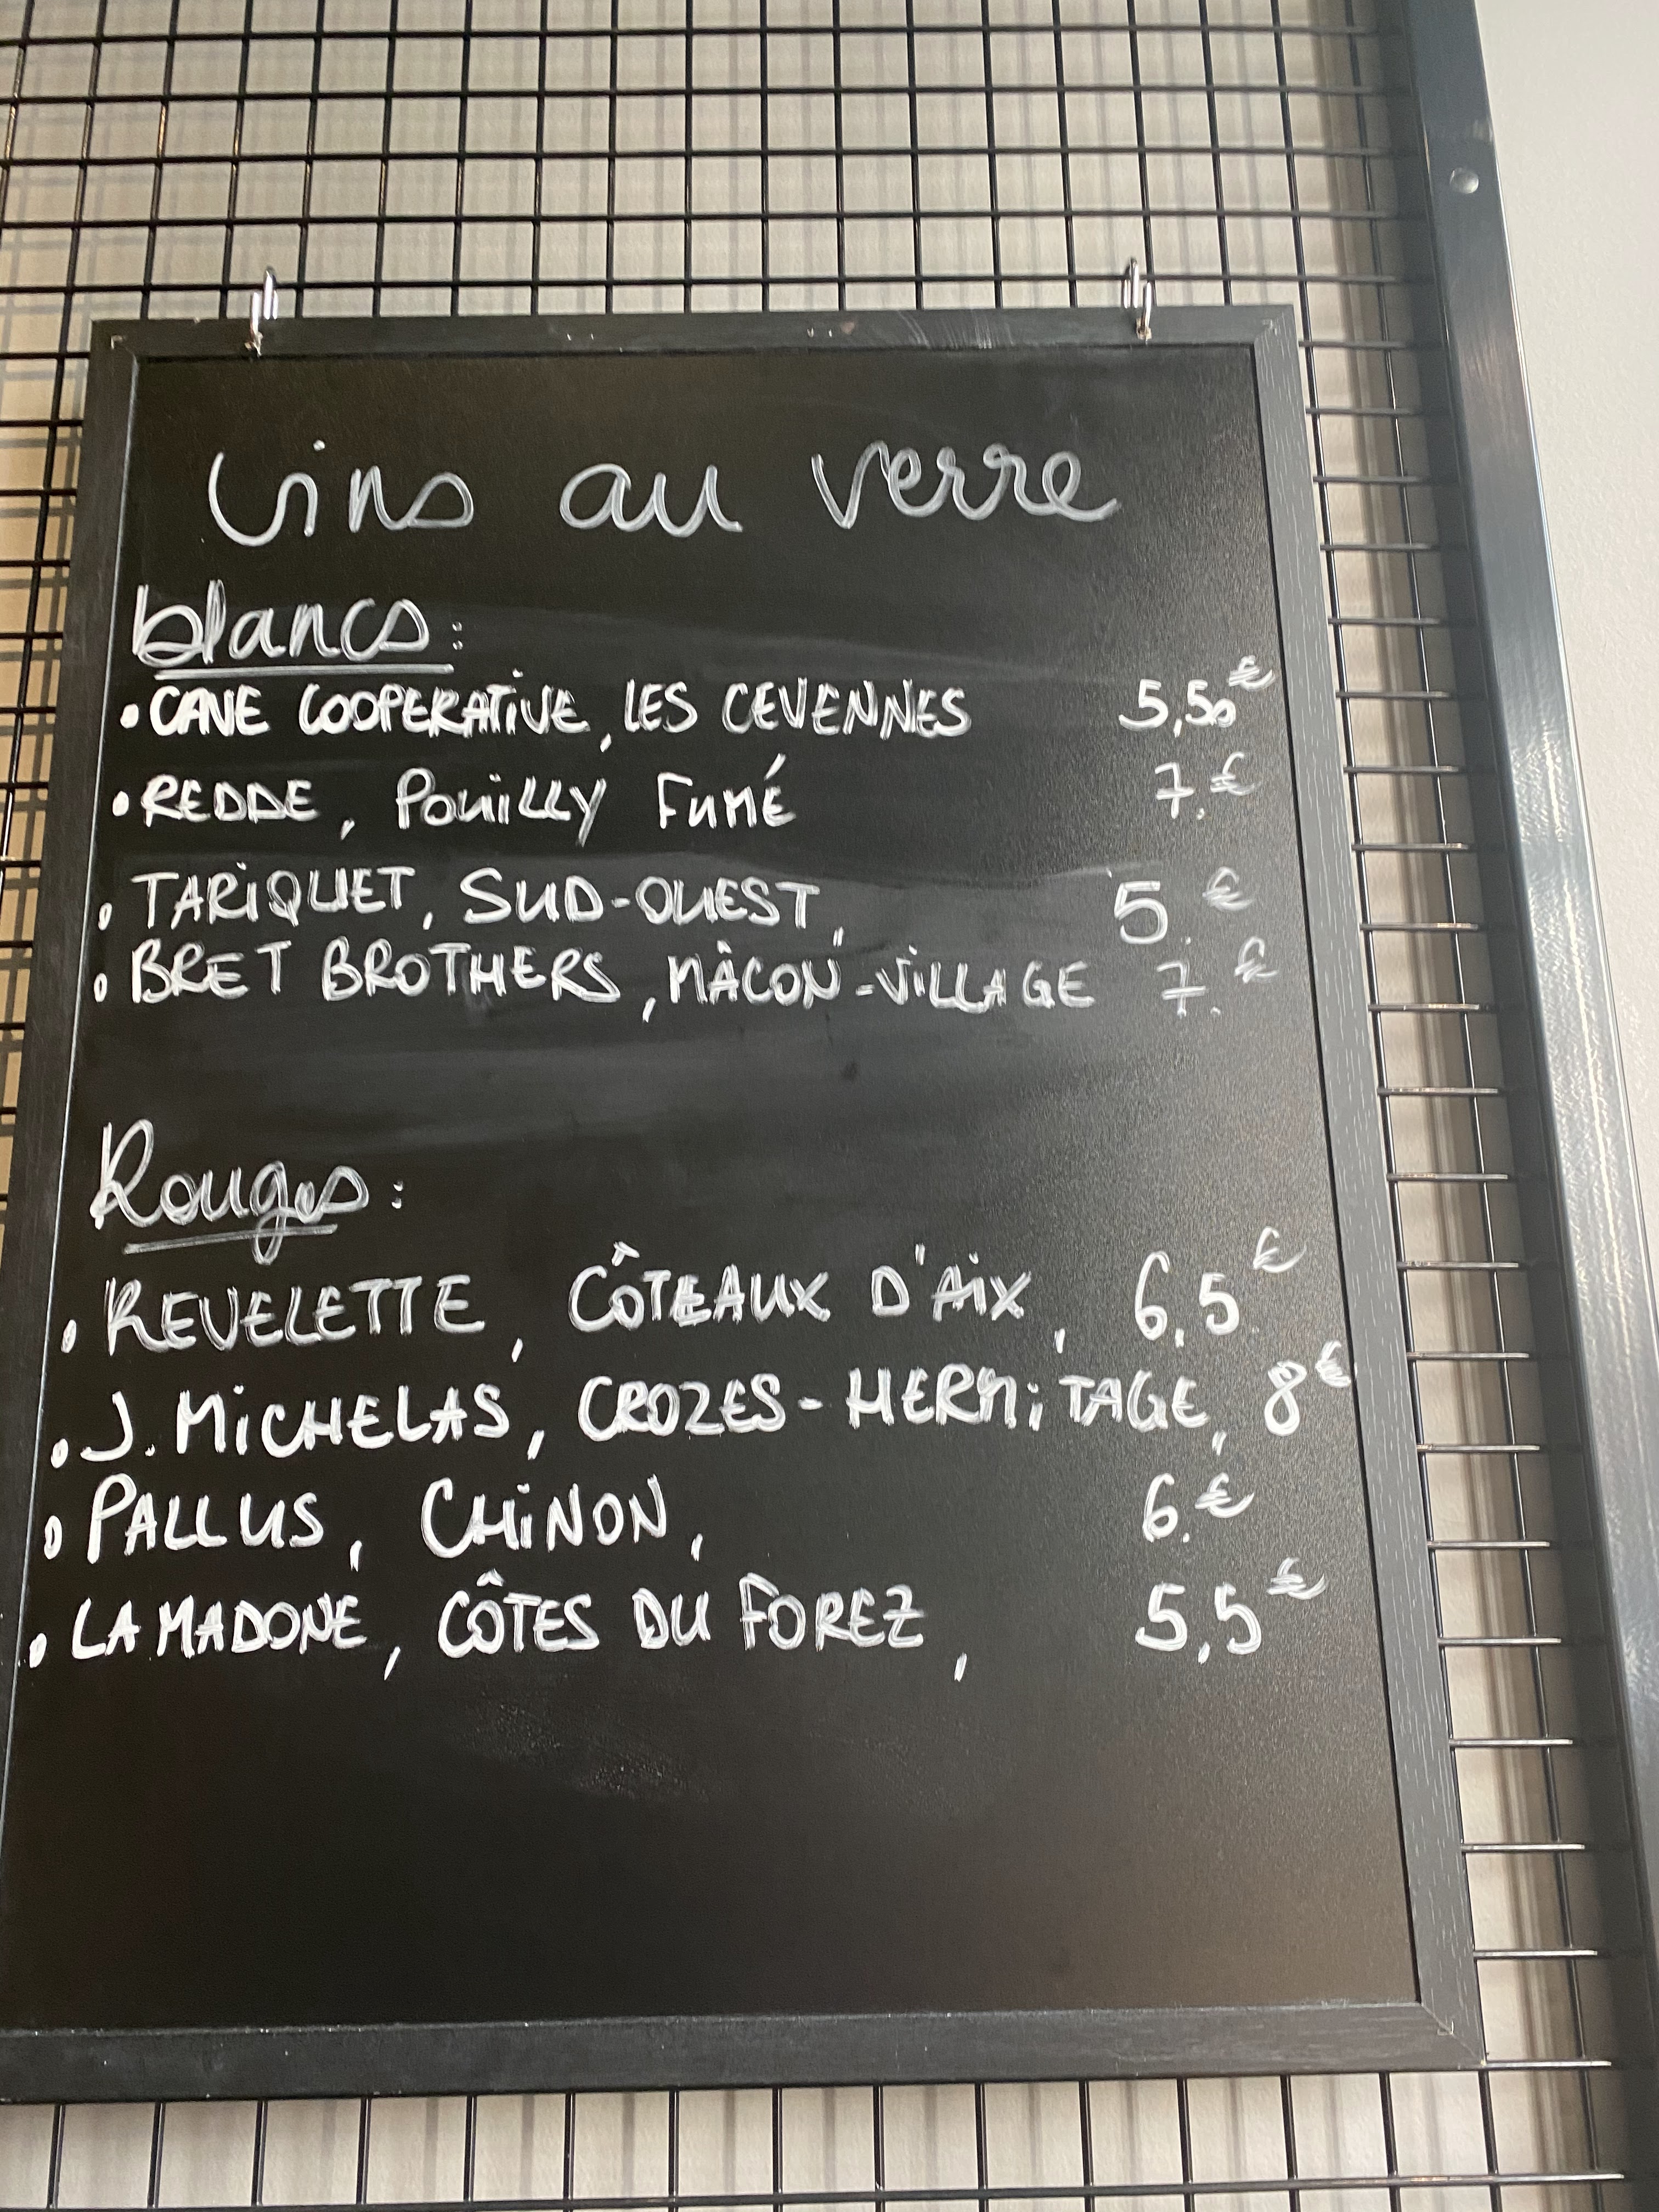 Vins au verre
blancs :
• CAVE COOPERATIVE, LES CEVENNES 5,50€
• REDDE, POUILLY FUMÉ 7.€
• TARIQUET, SUD-OUEST, 5.€
• BRET BROTHERS, MÂCON-VILLAGE 7.€
Rouges :
• REVELETTE, CÔTEAUX D'AIX, 6,5€
• J. MICHELAS, CROZES-HERMITAGE, 8€
• PALLUS, CHINON, 6.€
• LA MADONE, CÔTES DU FOREZ, 5,5€